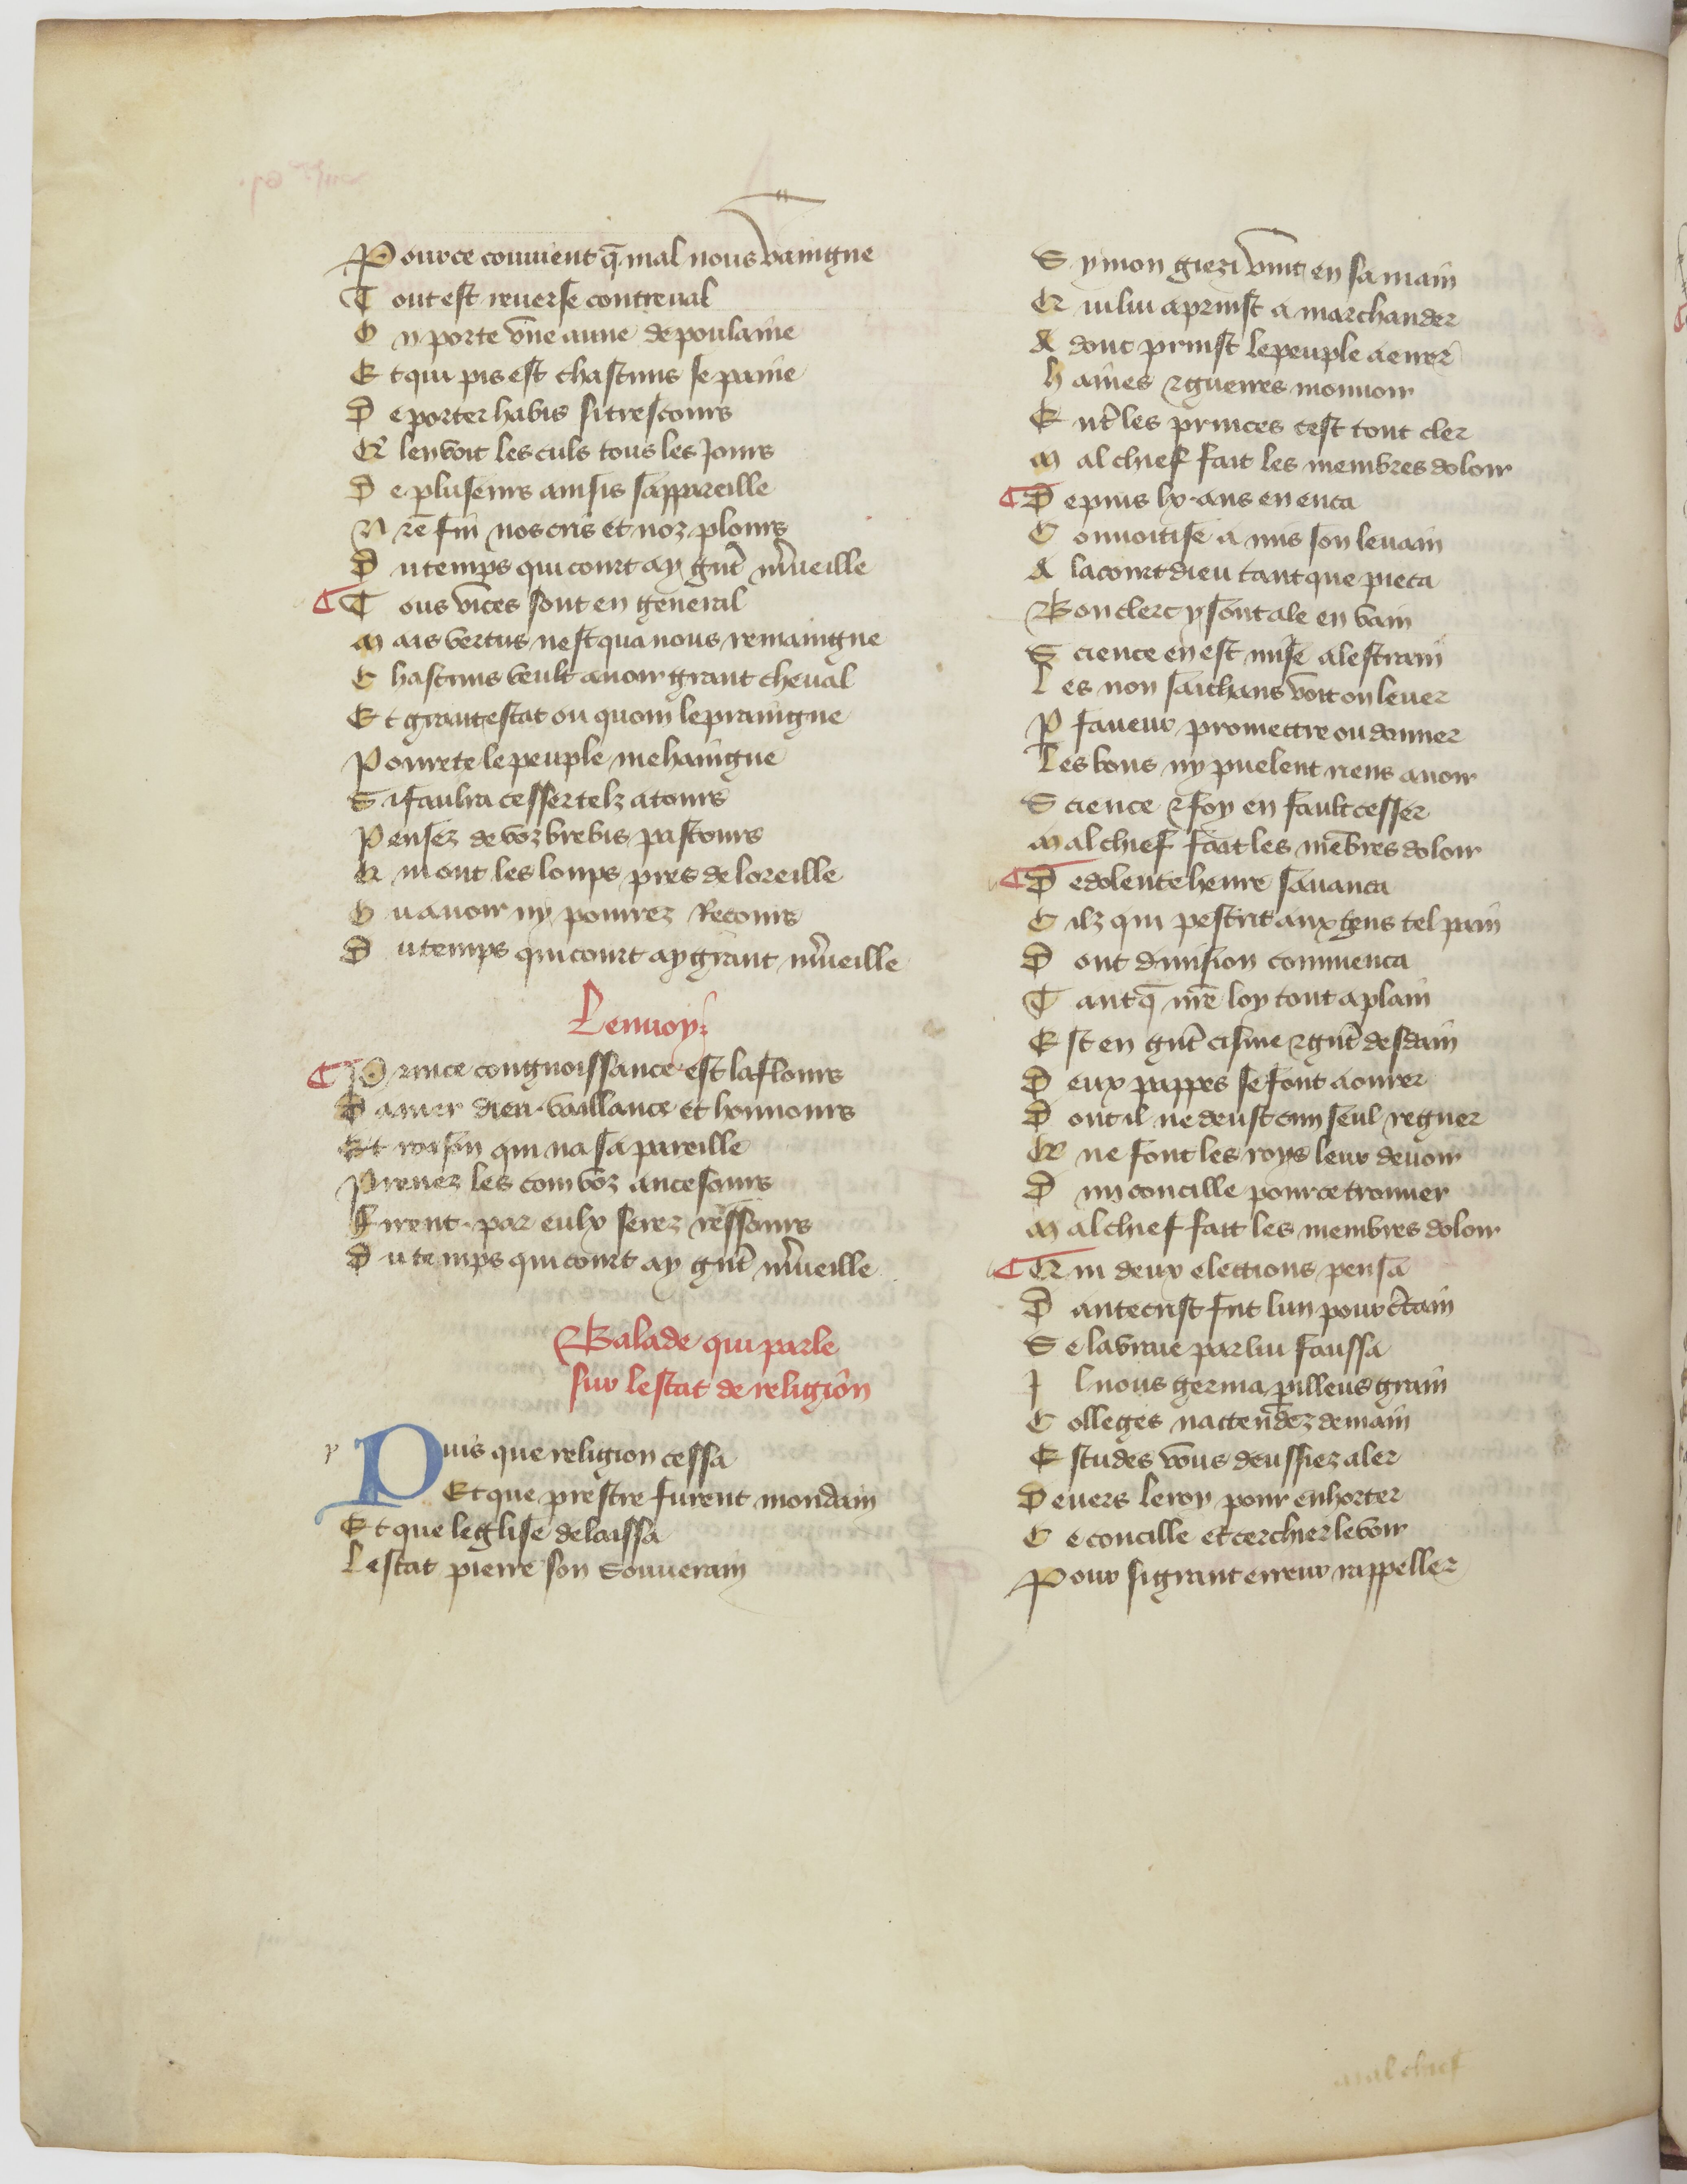 Pource couuient q̄ mal nous vaingne
Tout est reuerse contreual
On porte vne aune de poulaine
Et qui pis est chascuns se paine
De porter habis si tres cours
Et len voit les culs tous les Jours
De pluseurs ainsis sappareille
Nr̄e fin nos cris et noz plours
Du temps qui court ay gnt̄ m̄ueille
Tous vices sont en general
Mais vertus nest qua nous remaingne
Chascuns veult auoir grant cheual
Et grant estat ou quom le praingne
Pourete le peuple mehaingne
Si faulra cesser telz atours
Pensez de voz brebis pastours
Et mont les loups pres de loreille
Ou auoir ny pourrez Recours
Du temps qui court ay grant m̄ueille
Lenuoy
Prince congnoissance est la flours
Damer dieu . vaillance et honnours
Et raison qui na sa pareille
Prenez les com voz ancesours
Firent . par eulx serez ressours
Du temps qui court ay gnt̄ m̄ueille
Balade qui parle
sur lestat de religion
p
Puis que religion cessa
Et que prestre furent mondain
Et que leglise delaissa
Lestat pierre son souuerain
Symon giezi vint en sa main
Et illui aprinst a marchander
Adonc prinst le peuple a errer
haines ⁊ guerres mouuoir
Ent̄ les princes cest tout cler
Mal chief fait les membres doloir
Depuis lx. ans en enca
Conuoitise a mis son leuain
A la court dieu tant que pieca
Bon clerc y sont ale en vain
Science en est mise a lestrain
Les non saichans voit on leuer
P faueur promettre ou donner
Les bons ny puelent riens auoir
Science ⁊ foy en fault cesser
Mal chief fait les mēbres doloir
De dolente heure sauanca
Cilz qui pestrit aux gens tel pain
Dont diuision commenca
Tant q̄ nr̄e loy tout a plain
Est en gnt̄ cisme ⁊ gnt̄ desdain
Deux pappes se font aourer
Dont il ne deust cun seul regner
Et ne font les roys leur deuoir
Dun concille pour ce trouuer
Mal chief fait les membres doloir
En deux elections pensa
Dantecrist fut lun pour c̄tain
Se la vraie par lui faussa
Il nous germa pilleus grain
Colleges nattendez demain
Estudes vous deussiez aler
Deuers le roy pour enhorter
Ce concille et cerchier le voir
Pour si grant erreur rappeller
mal chief